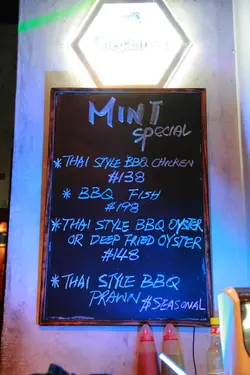 MINT
SPECIAL
* THAI STYLE BBQ CHICKEN
#138
* BBQ FISH
#198
* THAI STYLE BBQ OYSTER
OR DEEP FRIED OYSTER
#148
* THAI STYLE BBQ
PRAWN #SEASONAL